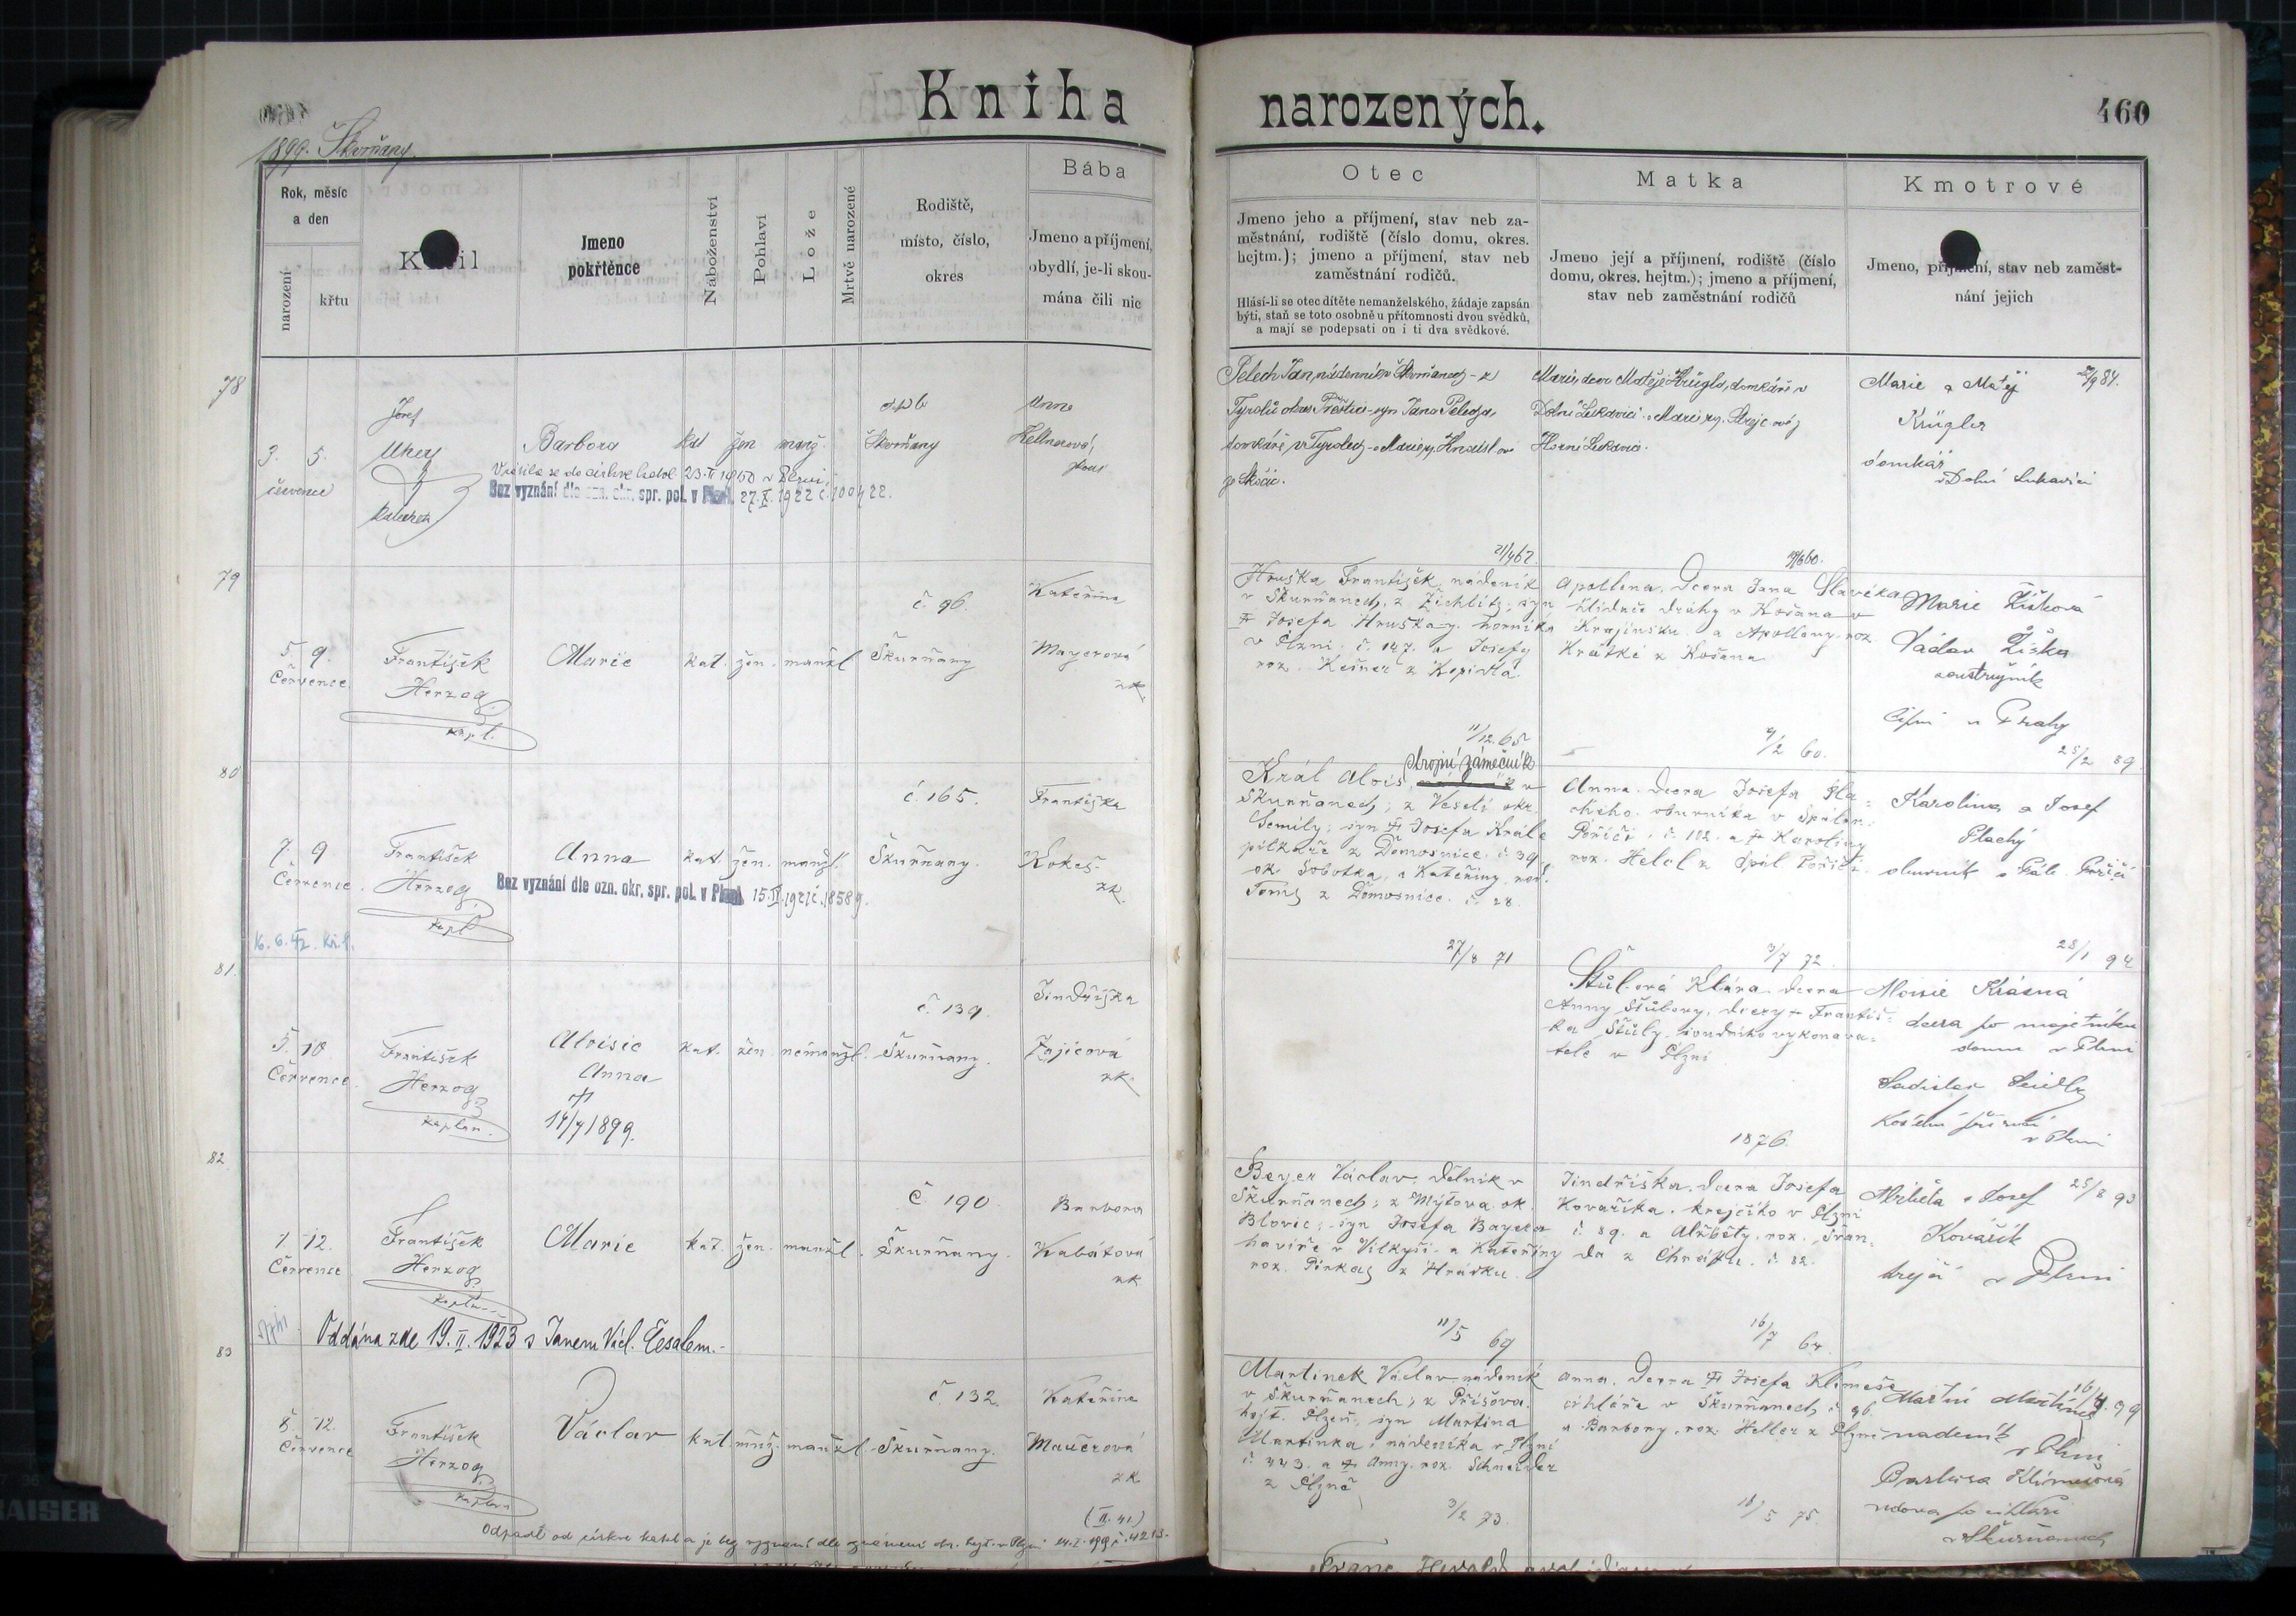 Kniha narozených.
460
1899. Škvrňany
Rok, měsíc a den
narození
křtu
K il
Jmeno pokřtěnce
Náboženství
Pohlaví
Lože
Mrtvě narozené
Rodiště, místo, číslo, okres
Bába
Jmeno a příjmení, obydlí, je-li skou- mána čili nic
Otec
Jmeno jeho a příjmení, stav neb za-
městnání, rodiště (číslo domu, okres.
hejtm.); jmeno a příjmení, stav neb
zaměstnání rodičů.
Hlásí-li se otec dítěte nemanželského, žádaje zapsán
býti, staň se toto osobně u přítomnosti dvou svědků,
a mají se podepsati on i ti dva svědkové.
Matka
Jmeno její a příjmení, rodiště (číslo
domu, okres. hejtm.); jmeno a příjmení,
stav neb zaměstnání rodičů
Kmotrové
Jmeno, příjmení, stav neb zaměst-
nání jejich
78
3. 5.
července
Josef
Barbora kat žen manž. Škvrňany
Anna
Kellnerová
Vrátila se do církve katol. 23. II 1950 v Plzni.
Bez vyznání dle ozn. okr. spr. pol. v Plzni. 27. X. 1922 č. 100422.
Pelech Jan, nádenník v Škvrňanech - z
syn Jana Pelecha,
domkáře v
Marie, dcera Matěje Krüglа, domkáře v
Dolní Lukavici a Marie roz.
Horní Lukavice.
Marie a Matěj
Krügler
domkář
v Dolní Lukavici
79
5. 9.
Července
František
Herzog
kapl.
Marie kat. žen. manžl. Škurňany
č. 96.
Kateřina
Mayerová
zk.
Hruška František, nádeník
v Škurňanech, z Žichlitz; syn
† Josefa Hrušky, horníka
v Plzni č. 147. a Josefy
roz. Kešner z Kopidla
Apollena, dcera Jana Slavíka
hlídače dráhy v Košana v
Krajinsku a Apolleny roz.
Krátké z Košana
Marie Žišková
Václav Žiška
soustružník
u Prahy
80
11/12. 65
7/2 60.
25/2 89.
7. 9
Července
František
Herzog
kapl
Anna kat. žen. manžl. Škurňany.
č. 165.
Františka
Kokeš
zk.
Bez vyznání dle ozn. okr. spr. pol. v Plzni 15. II. 1921 č. 18589.
Král Alois, strojní zámečník v
Škurňanech; z Veselí okr.
Semily; syn † Josefa Krále
pilkaře z Domosnice č. 39
ok. Sobotka, a Kateřiny roz.
Tomš z Domosnice. č. 28.
Anna, dcera Josefa Pla-
chého, obuvníka v Spálen.
Poříčí č. 102. a † Karoliny
roz. Helcl z Spál Poříčí.
Karolina a Josef
Plachý
obuvník v Spál. Poříčí
81.
27/8 71
3/7 72.
28/1 94
5. 10
Července
František
Herzog
kaplan.
Aloisie
Anna
†
14/7 1899.
kat. žen. nemanžl. Škurňany.
č. 139.
Jindřiška
Zajícová
zk.
Štůlová Klára, dcera
Anny Štůlovy, dcery † Františ-
ka Štůly, soudního vykonava-
tele v Plzni
Aloisie Krásná
dcera po majetníku
domu v Plzni
Ladislav
v Plzni
82
1876.
7 12.
Července
František
Herzog
kaplan
Marie kat. žen. manžl. Škurňany.
č. 190
Barbora
Kabátová
zk
Beyer Václav, dělník v
Škurňanech; z Mýtova ok.
Blovic; syn Josefa Bayera
havíře v Vilkyši a Kateřiny
roz. Pinkas z Hrádku.
Jindřiška, dcera Josefa
Kovaříka, krejčího v Plzni
č. 89. a Alžběty roz. Fran-
da z Chrástu. č. 82.
Alžběta a Josef
Kovařík
krejčí v Plzni
25/8 93
Oddána zde 19. II. 1923 s Janem Václ. Česalem.
83
11/5 69
16/7 64.
8. 12.
Července
František
Herzog
kaplan
Václav kat. muž. manžl. Škurňany.
č. 132.
Kateřina
Mauerová
zk
Martinek Václav nádeník
v Škurňanech; z Příšova.
hejt. Plzeň; syn Martina
Martinka, nádeníka v Plzni
č. 443. a † Anny roz. Schneider
z Plzně
Anna, dcera † Josefa Klimeše
cihláře v Škurňanech č. 96.
a Barbory, roz. Heller z Plzně
Martin Martinek
nádeník
v Plzni
Barbora Klimešová
vdova po cihláři
v Škurňanech
3/2 73.
16/5 75.
(II. 41.)
Odpadl od církve katol a je bez vyznání dle oznámení